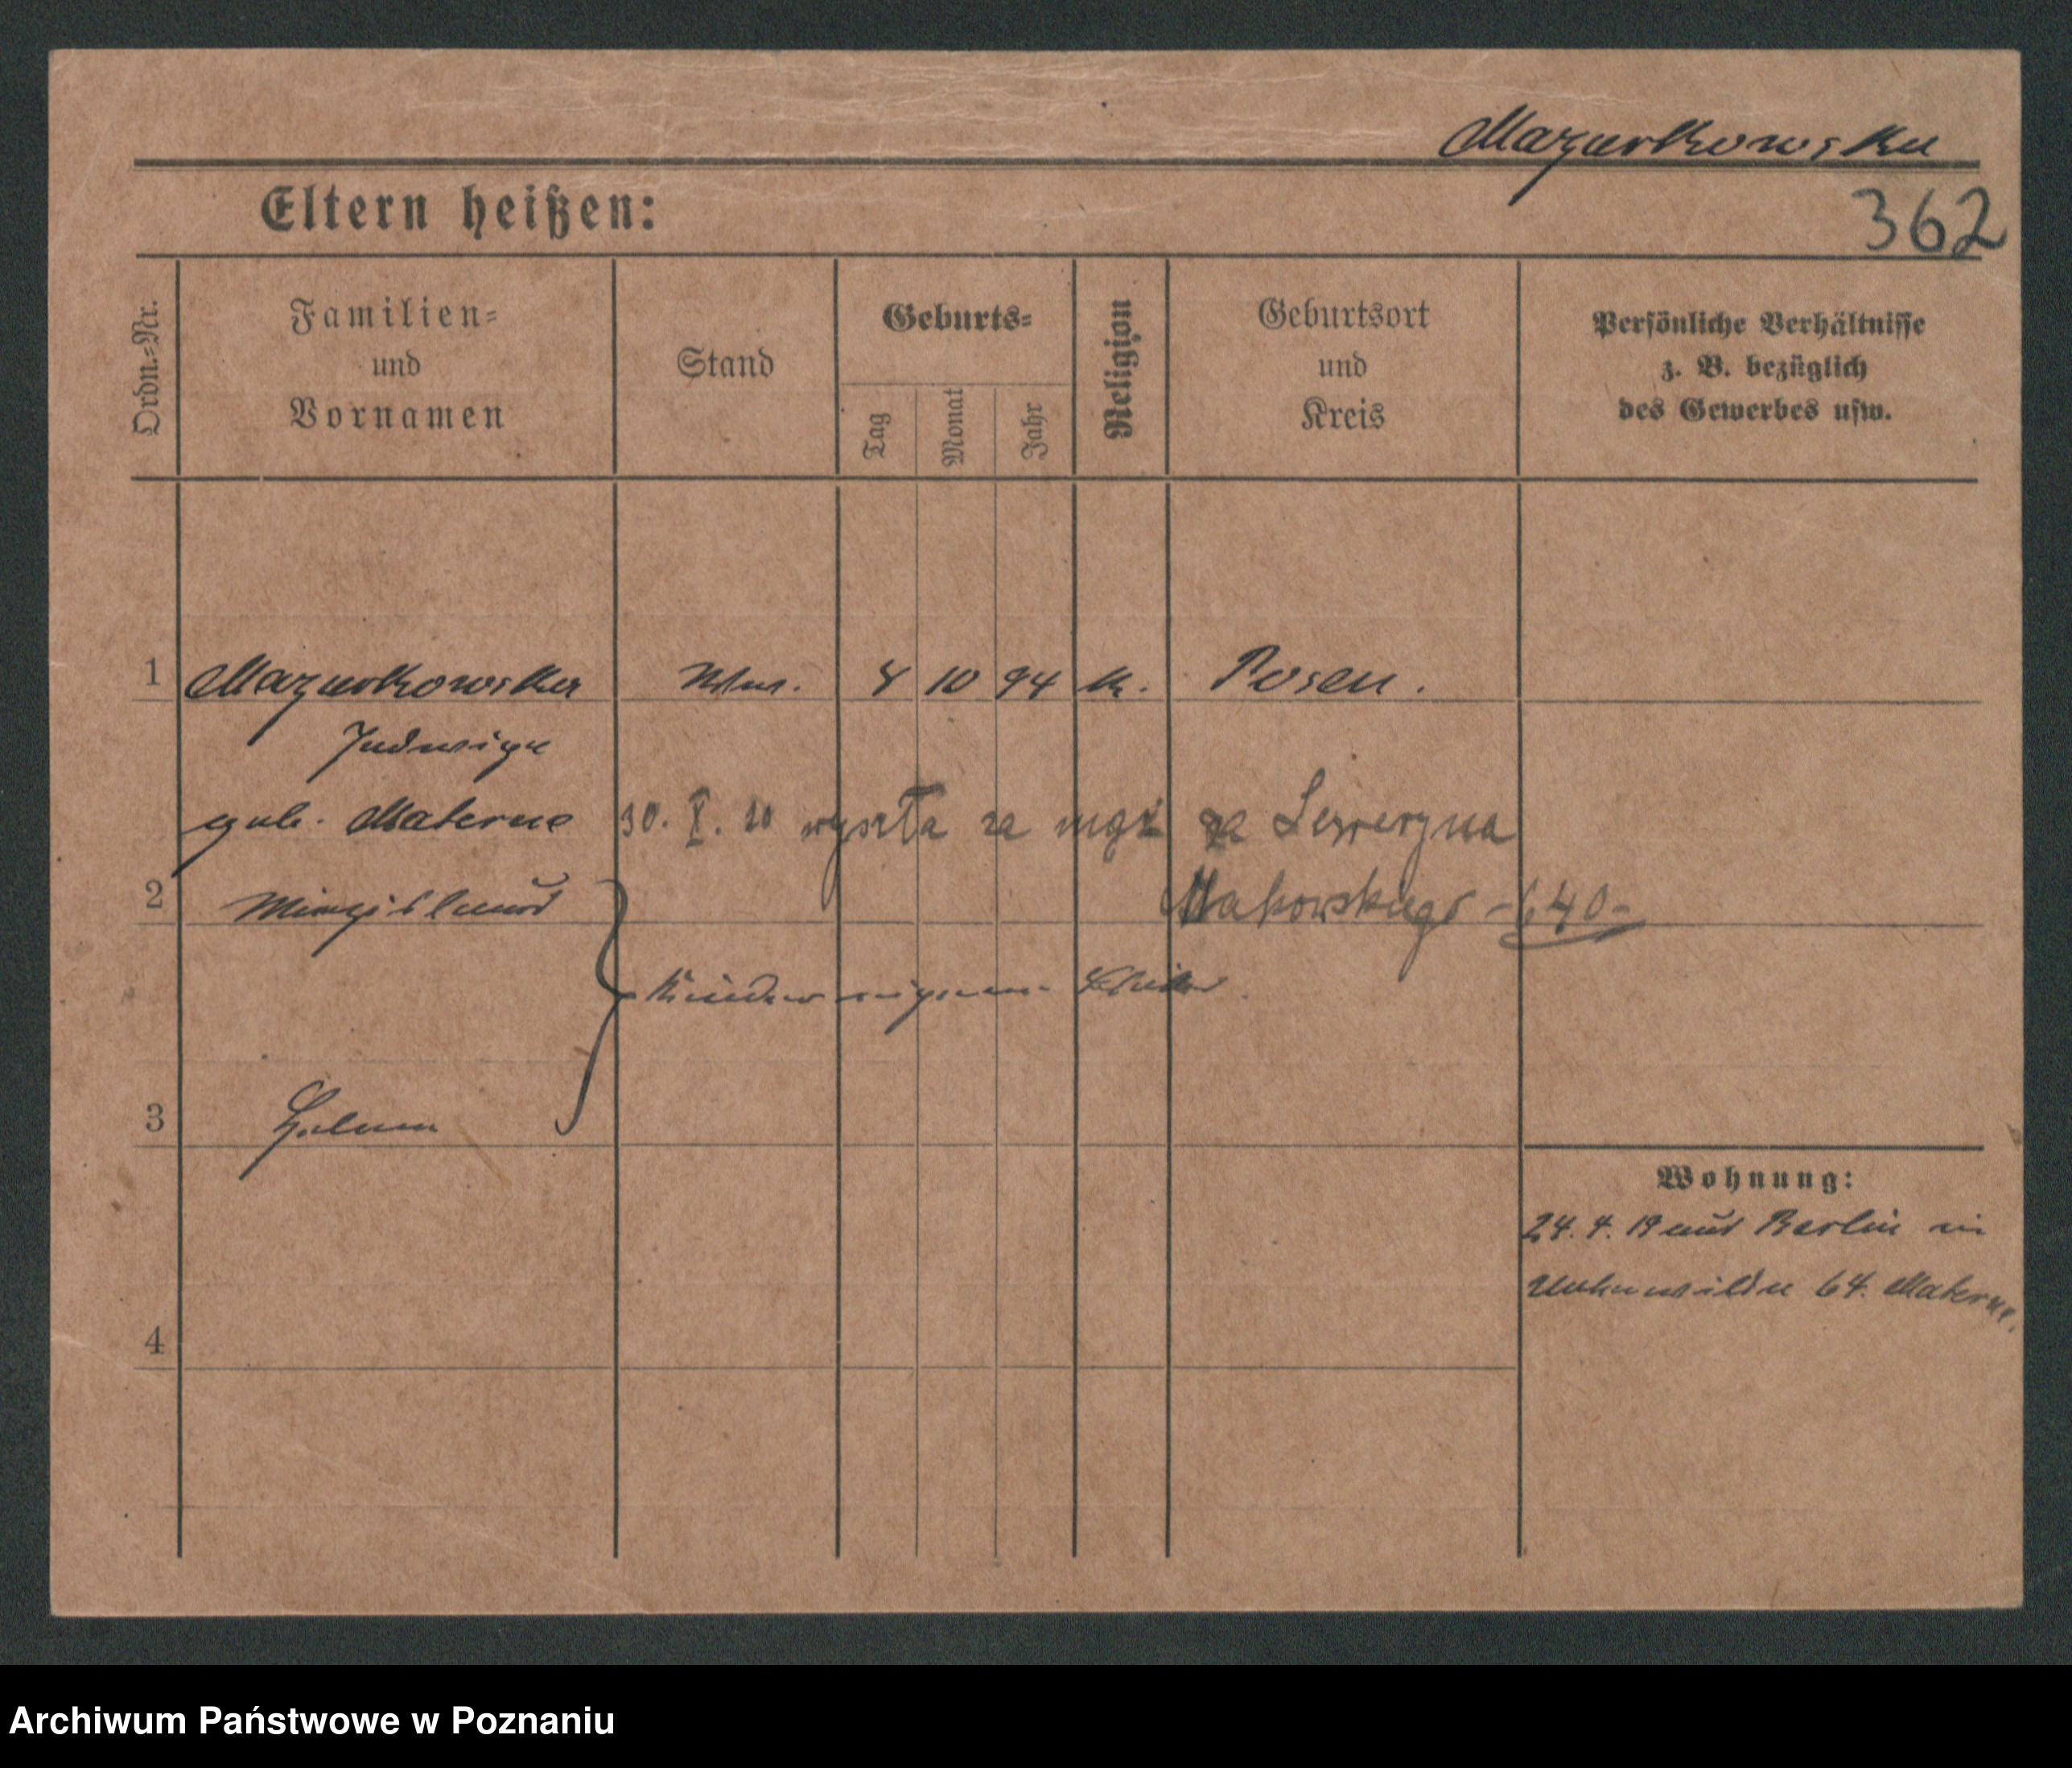 Mazurkowska
362
Eltern heißen:
Ordn.=Nr.
Familien=
und
Vornamen
Stand
Geburts=
Tag
Monat
Jahr
Religion
Geburtsort
und
Kreis
Persönliche Verhältnisse
z. B. bezüglich
des Gewerbes usw.
1 Mazurkowska 8 10 94 k. Posen.
Jadwiga
geb. Materne 30. X. 20 wyszła za mąż za Seweryna
2 Mieczislaus Makowskiego -640-
Kinder eigene Blätter.
3
Wohnung:
24. 4. 19 aus Berlin in
64. Materne.
4
Archiwum Państwowe w Poznaniu